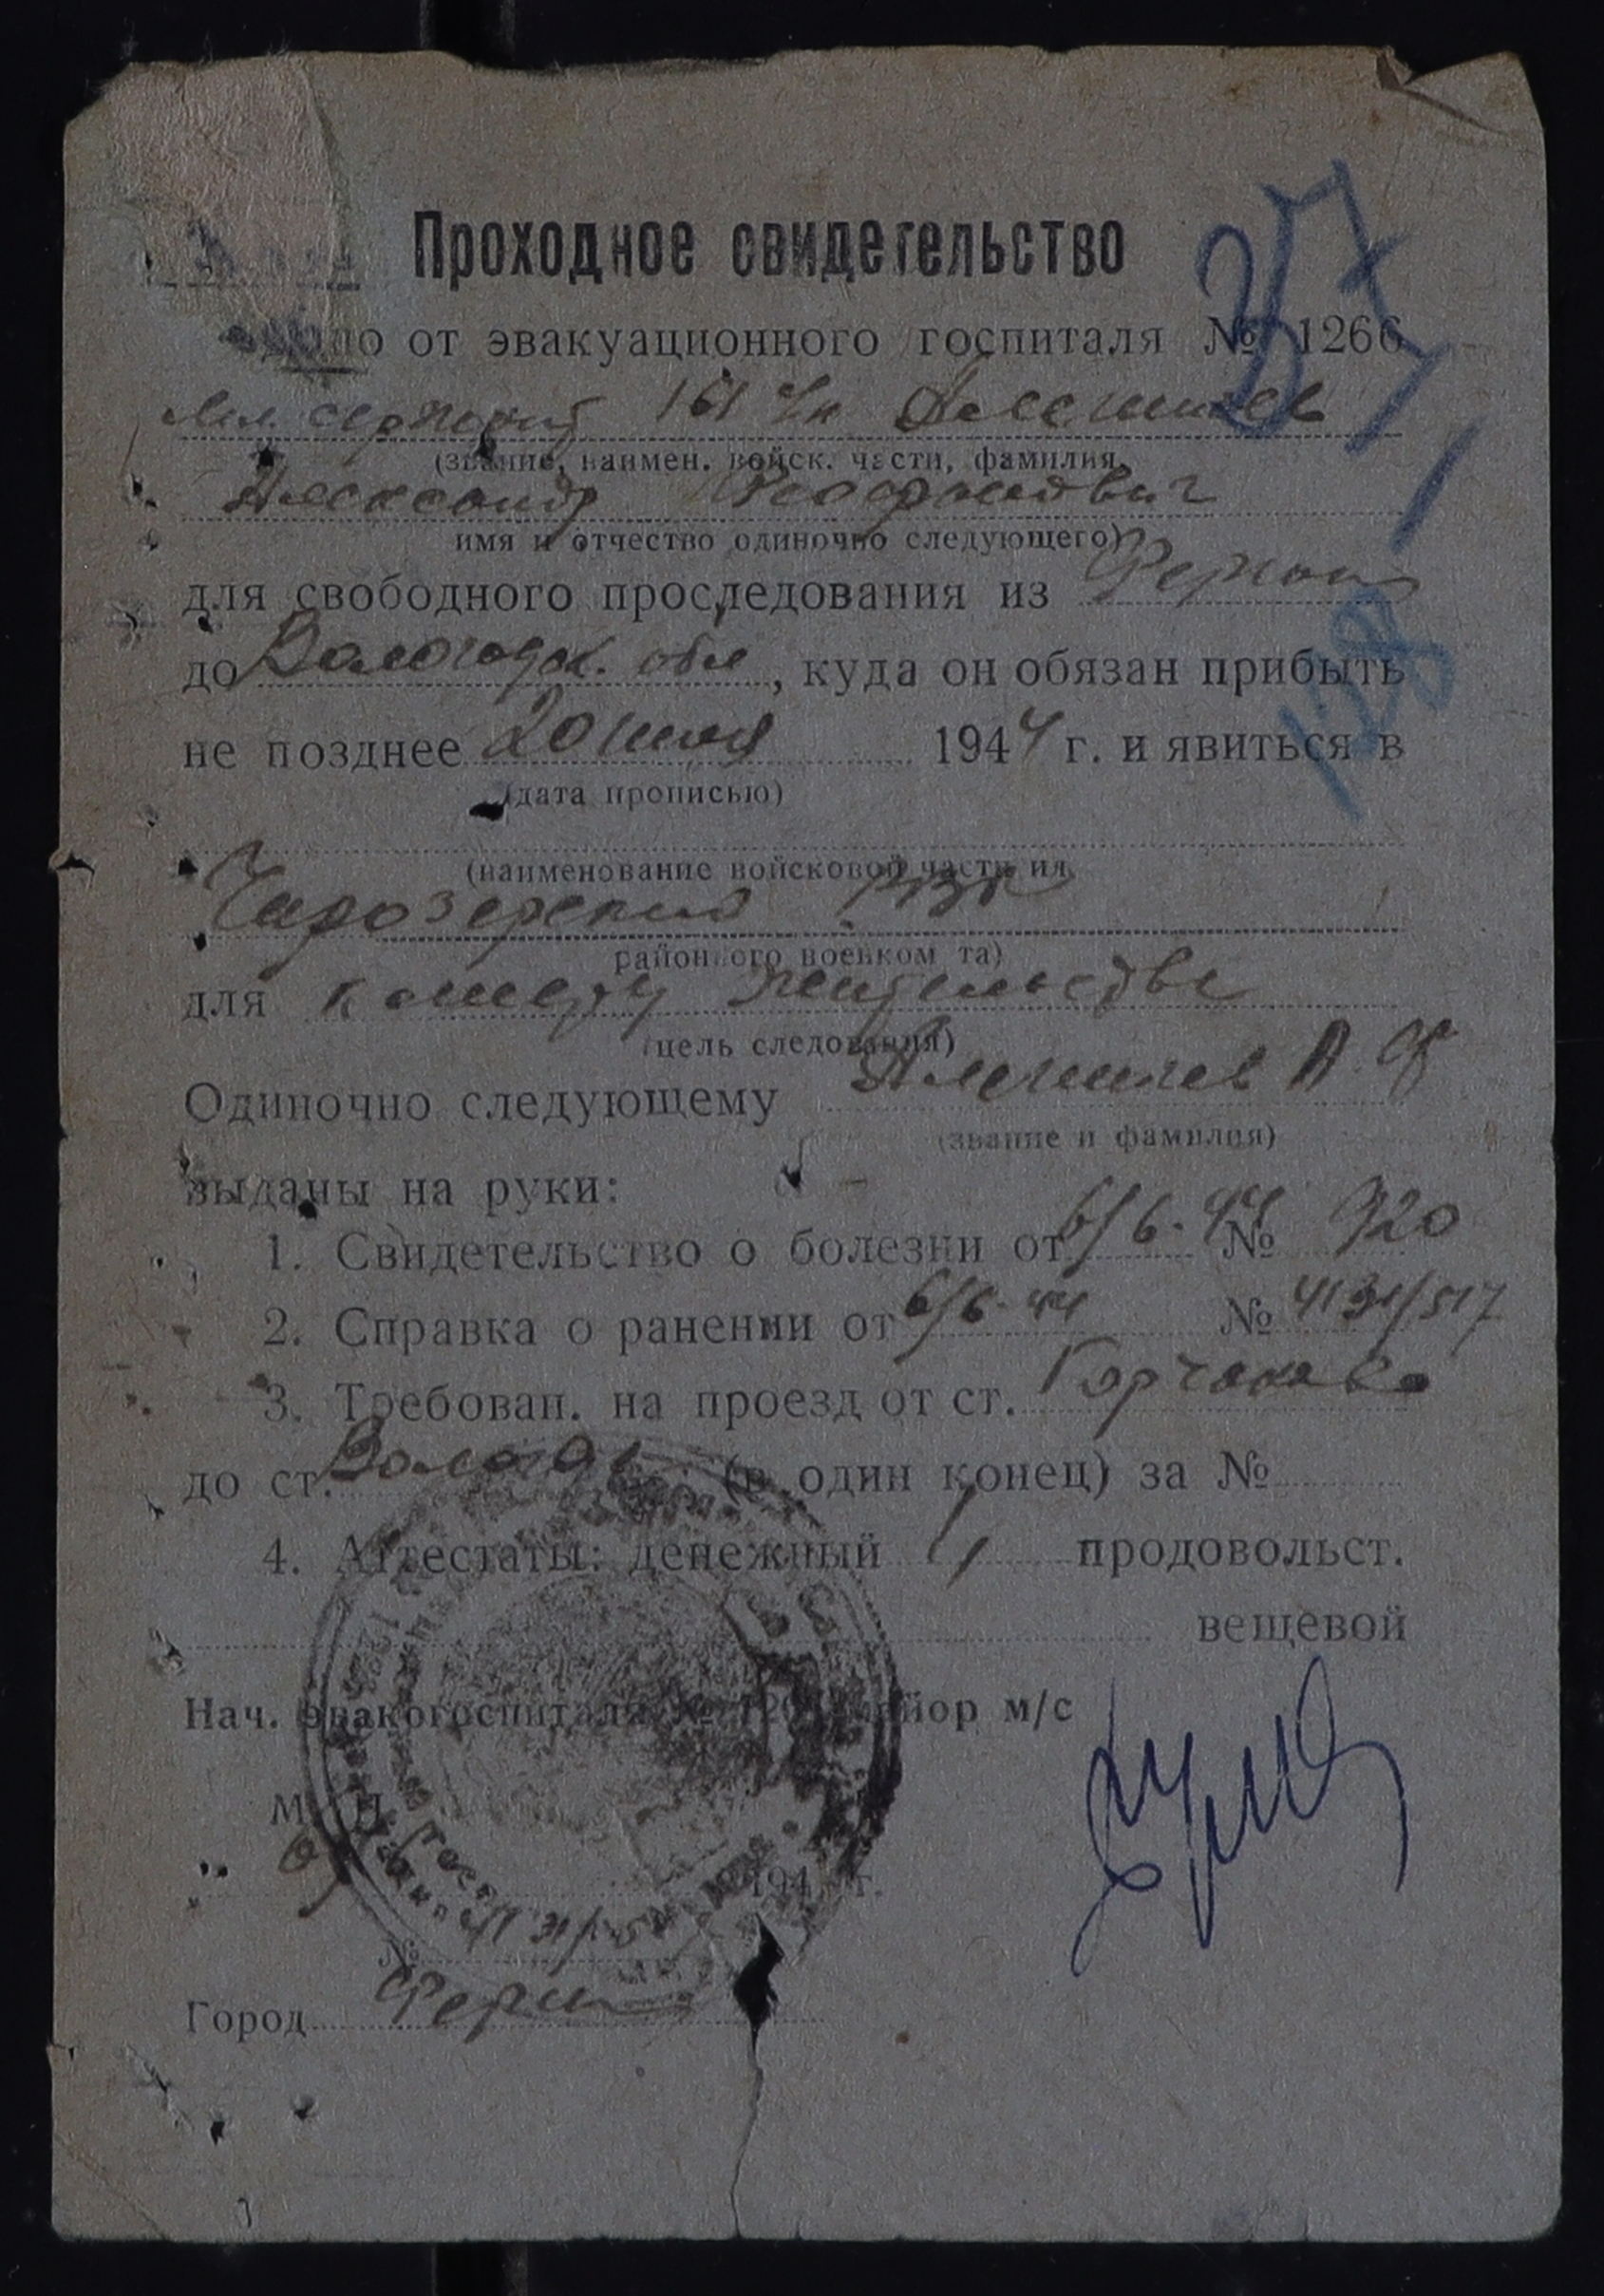 Проходное свидетельство
37
от эвакуационного госпиталя № 1266
Мл. сержант 161
(звание, наимен. войск. части, фамилия,
Александр Феофанович
имя и отчество одиночно следующего)
для свободного проследования из Ферганы
128
до Вологодск. обл , куда он обязан прибыть
не позднее 20 июля 1944 г. и явиться в
(дата прописью)
(наименование войсковой части ил
Чарозерский РВК
районного военком та)
для к месту жительства
(цель следования)
Одиночно следующему А. Ф
(звание и фамилия)
выданы на руки:
1. Свидетельство о болезни от 6/6-44 № 920
2. Справка о ранении от 6/6-44 № 4131/517
3. Требован. на проезд от ст. Горчаково
до ст. Вологда (в один конец) за №
4. Аттестаты: денежный продовольст.
вещевой
Нач. эвакогоспиталя № майор м/с
М. П.
194 г.
№
Город Ферг